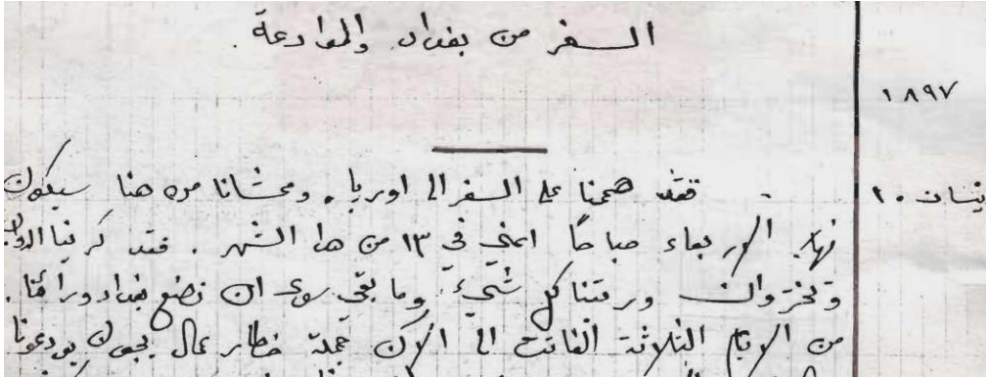 السفر من بغداد والموادعة.
١٨٩٧
نيسان ١٠ فقد هممنا على السفر الى اوربا. ومحشانا من هنا سيكون
نهار الاربعاء صباحًا اعني في ١٣ من هذا الشهر. فقد كرينا
وتختروان ورتبنا كل شيء. وما بقي سوى ان نضع بغداد وراءنا.
من الايام الثلاثة الفائتة الى الآن جملة خطاير عمال يجون يودعونا